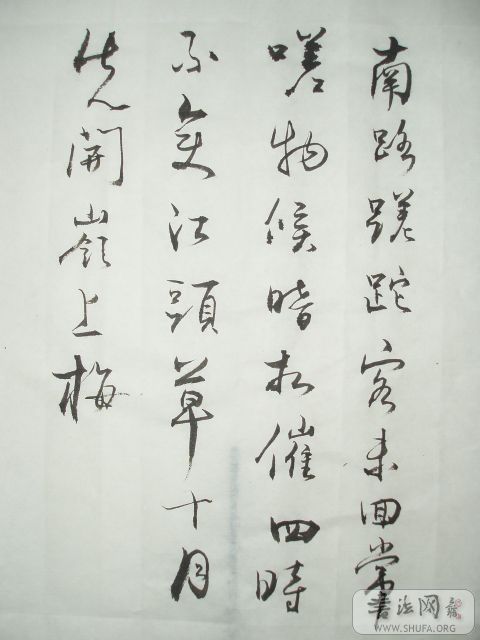 南路蹉跎客未回常
嗟物候暗相催四時
不變江頭草十月
先開嶺上梅
書法网
WWW.SHUFA.ORG